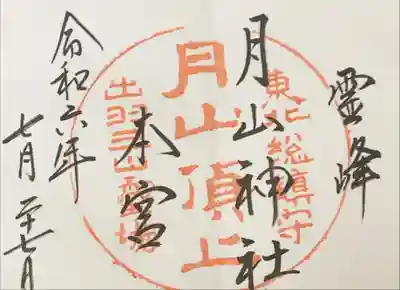 霊峰
東北総鎮守
月山神社
月山頂上
本宮
出羽三山霊場
令和六年
七月二十七日